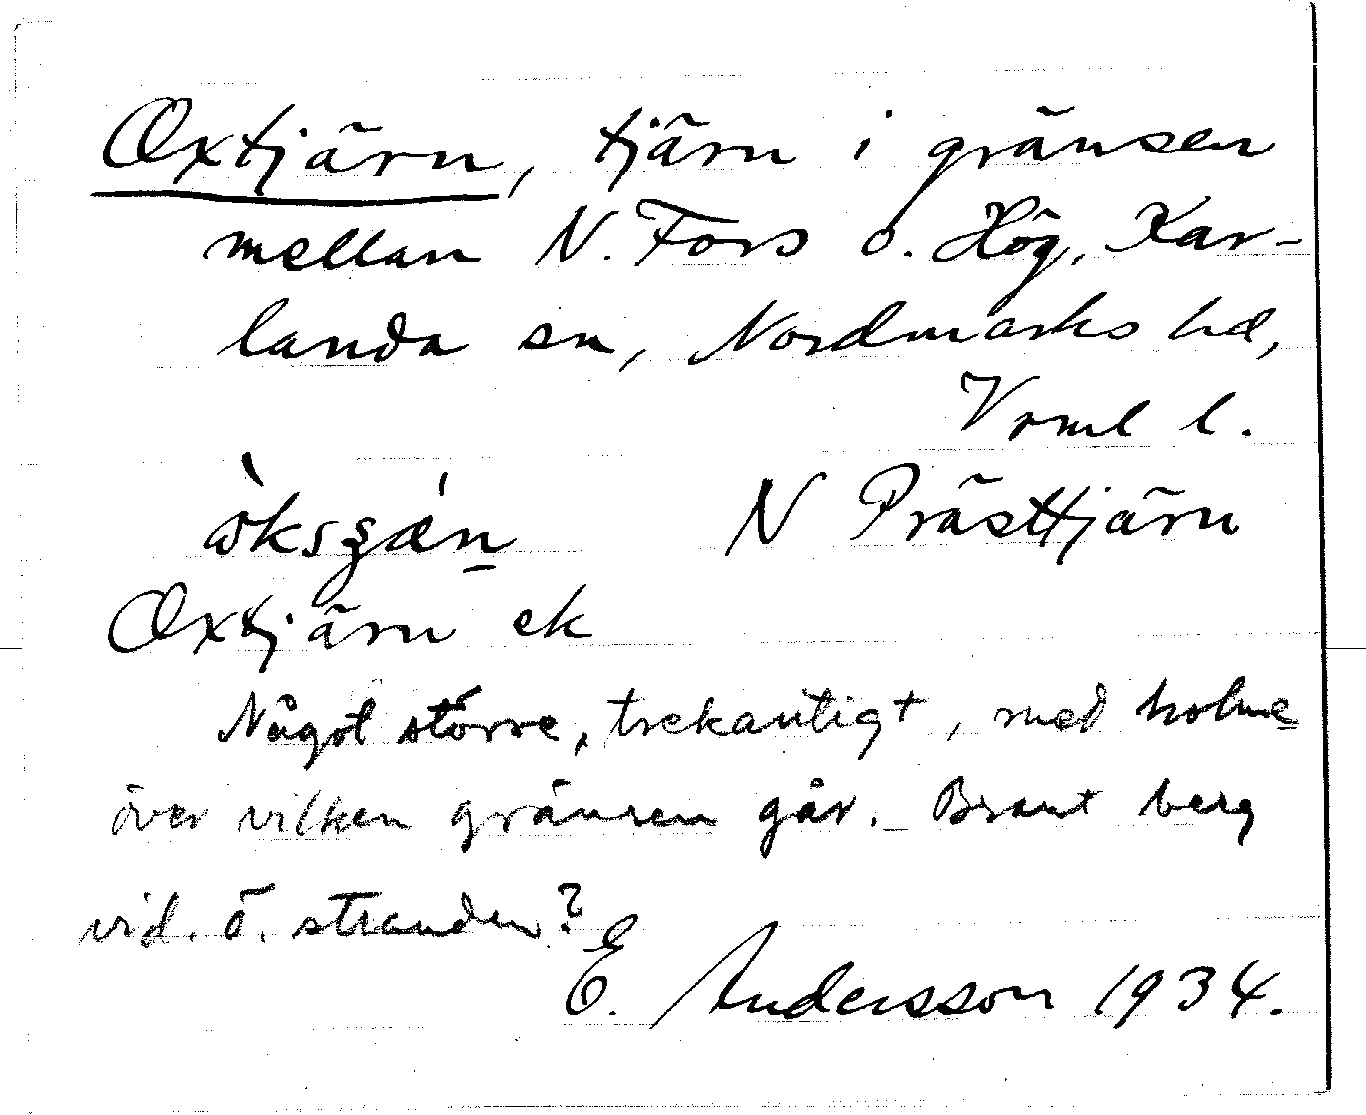 Oxtjärn, tjärn i gränsen
mellan N. Fors o. Hög, Kar-
landa sn, Nordmarks hd,
Vrml l.
N Prästtjärn
Oxtjärn ek
Något större, trekantigt, med holme
över vilken gränsen går. – Brant berg
vid. ö. stranden?
E. Andersson 1934.